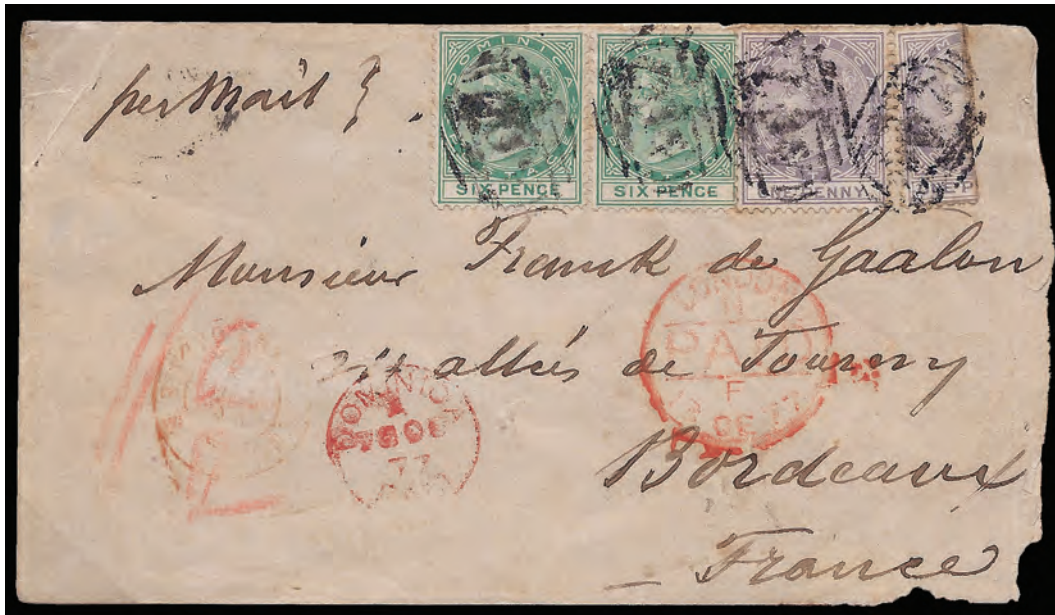 per Mail
DOMINICA
SIX PENCE
DOMINICA
SIX PENCE
DOMINICA
ONE PENNY
ONE P
Monsieur Franck de Gaalon
allées de Tourny
Bordeaux
France
LONDON
PAID
F
OC 77
DOMINICA
77